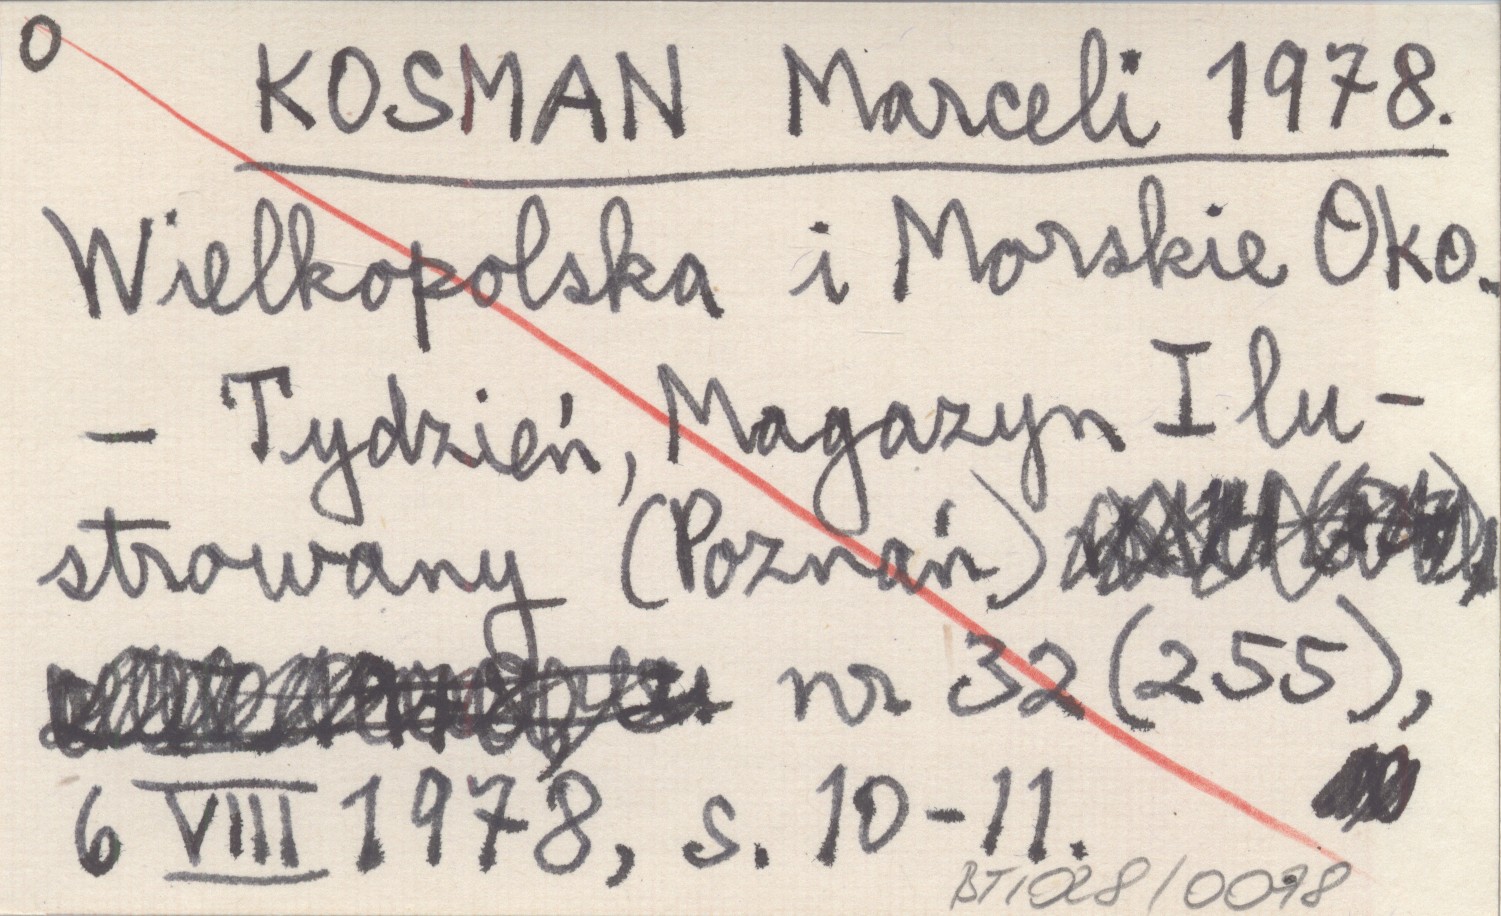 O
KOSMAN Marceli 1978.
Wielkopolska i Morskie Oko.
– Tydzień, Magazyn Ilu-
strowany (Poznań)
nr 32 (255),
6 VIII 1978, s. 10-11.
BT1028/0098